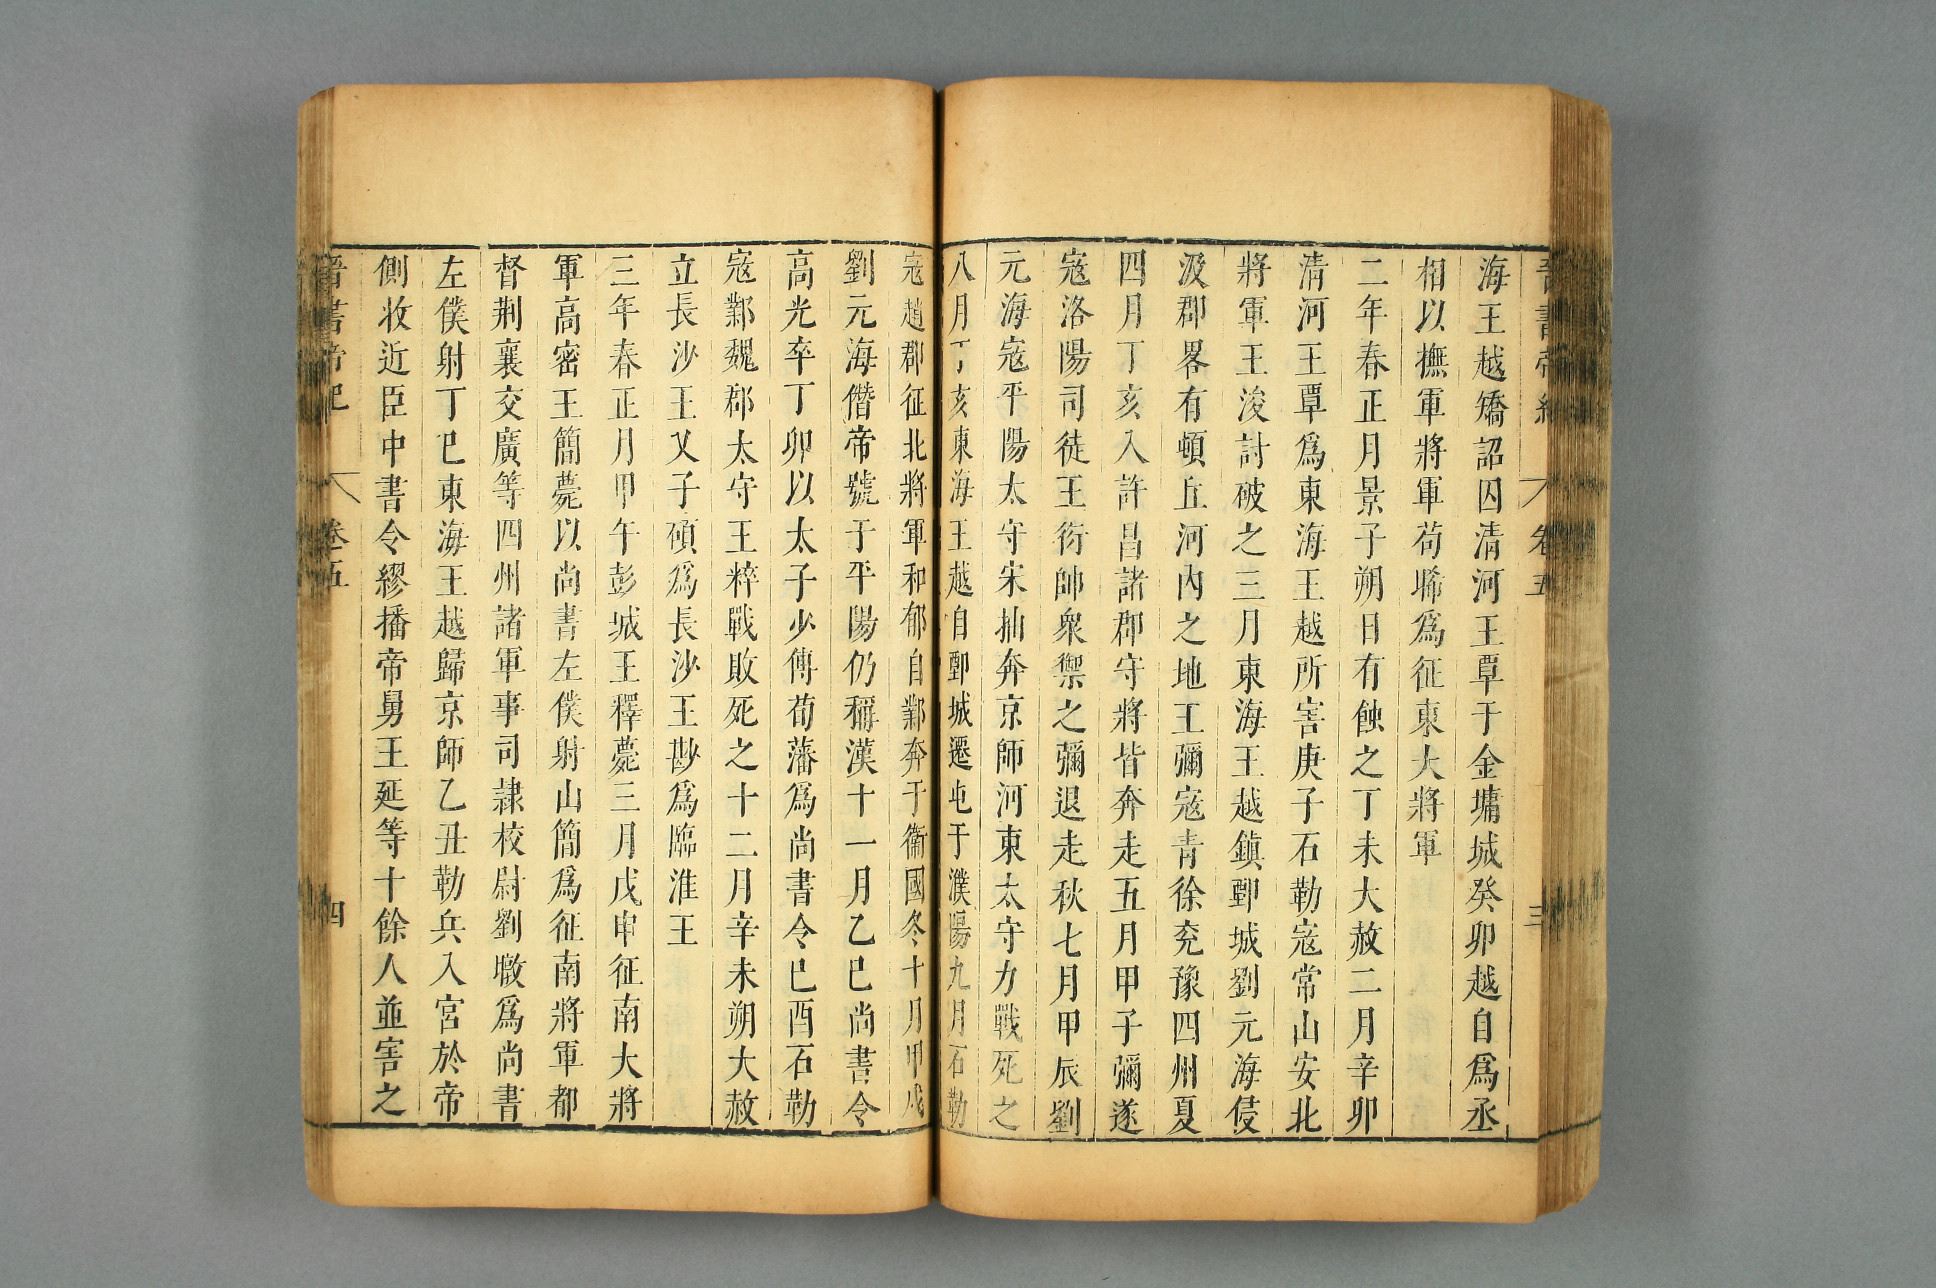 晉書帝紀 卷五 三
海王越矯詔囚清河王覃于金墉城癸卯越自爲丞
相以撫軍將軍苟晞爲征東大將軍
二年春正月景子朔日有蝕之丁未大赦二月辛卯
清河王覃爲東海王越所害庚子石勒寇常山安北
將軍王浚討破之三月東海王越鎮鄄城劉元海侵
汲郡畧有頓丘河內之地王彌寇青徐兖豫四州夏
四月丁亥入許昌諸郡守將皆奔走五月甲子彌遂
寇洛陽司徒王衍帥衆禦之彌退走秋七月甲辰劉
元海寇平陽太守宋抽奔京師河東太守力戰死之
八月丁亥東海王越自鄄城遷屯于濮陽九月石勒
寇趙郡征北將軍和郁自鄴奔于衞國冬十月甲戌
劉元海僭帝號于平陽仍稱漢十一月乙巳尚書令
高光卒丁卯以太子少傅荀藩爲尚書令已酉石勒
寇鄴魏郡太守王粹戰敗死之十二月辛未朔大赦
立長沙王乂子碩爲長沙王尠爲臨淮王
三年春正月甲午彭城王釋薨三月戊申征南大將
軍高密王簡薨以尚書左僕射山簡爲征南將軍都
督荆襄交廣等四州諸軍事司隷校尉劉暾爲尚書
左僕射丁巳東海王越歸京師乙丑勒兵入宮於帝
側收近臣中書令繆播帝舅王延等十餘人並害之
晉書帝紀 卷五 四